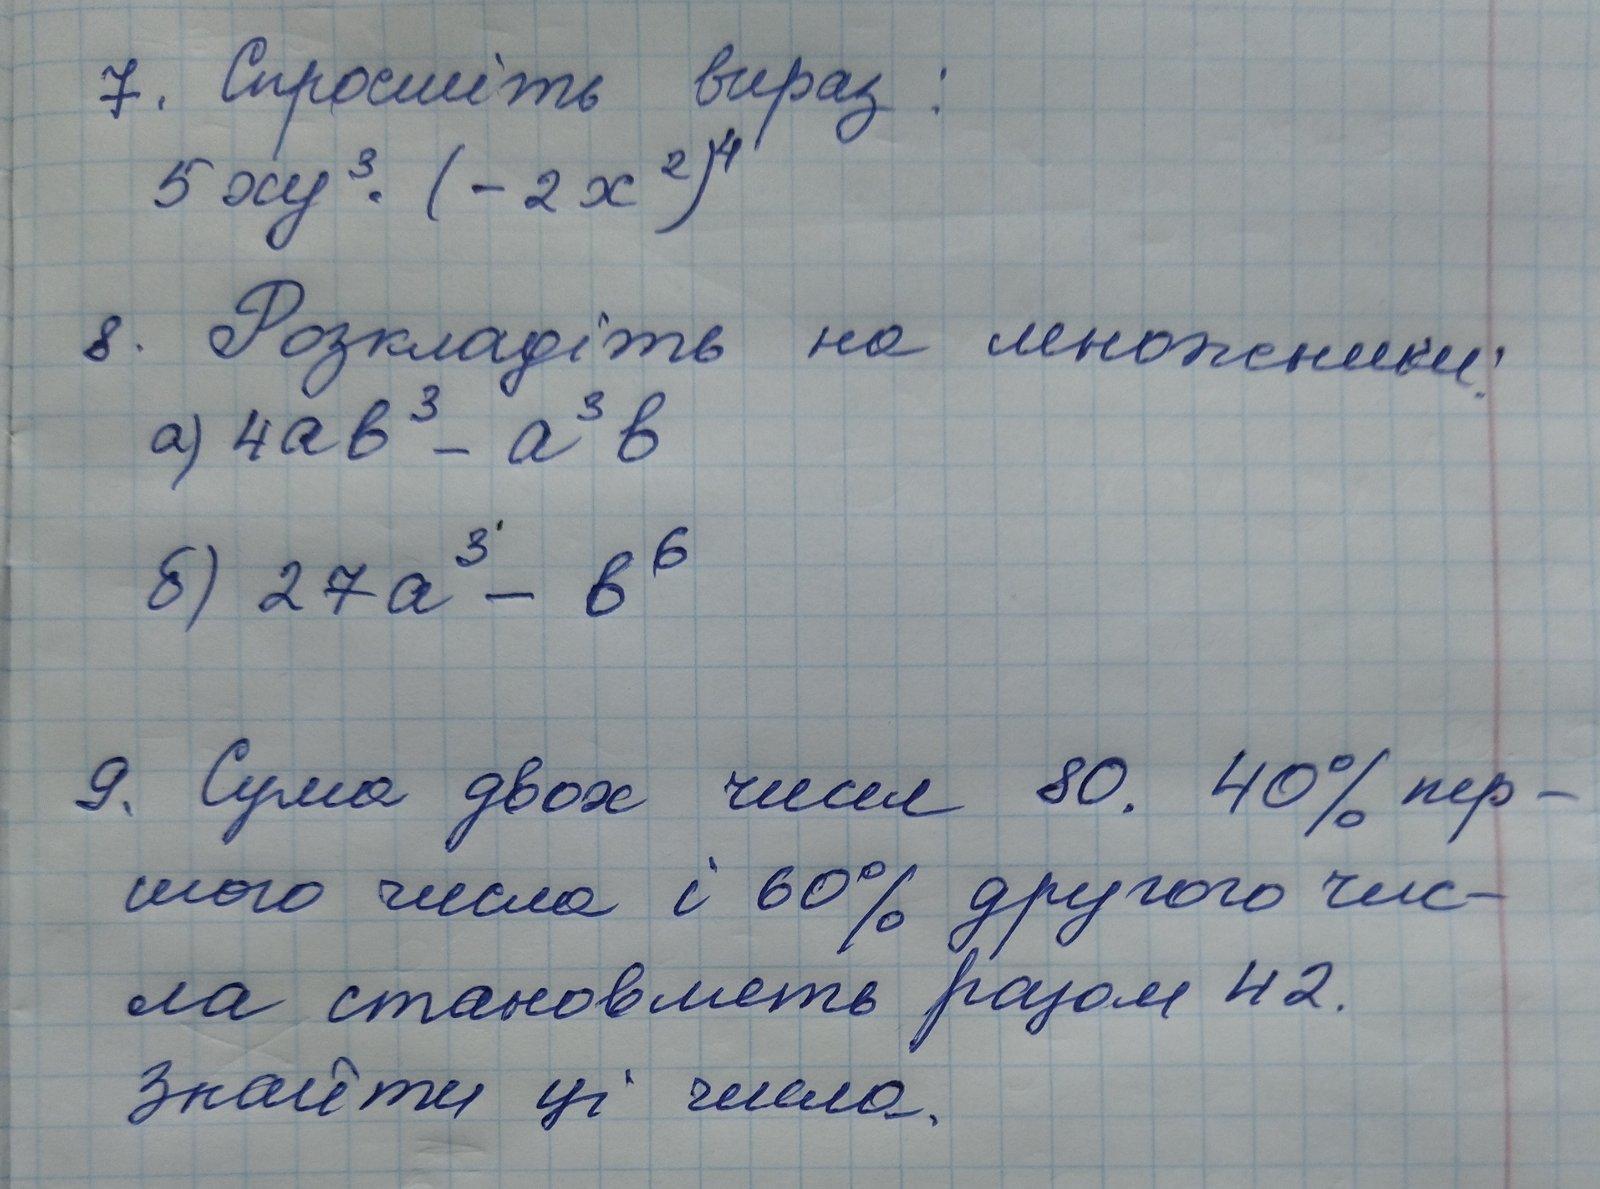 7. Спростіть вираз:
5xy³·(-2x²)⁴
8. Розкладіть на множники:
а) 4ab³ - a³b
б) 27a³ - b⁶
9. Сума двох чисел 80. 40% пер-
шого числа і 60% другого чис-
ла становлять разом 42.
Знайти ці числа.